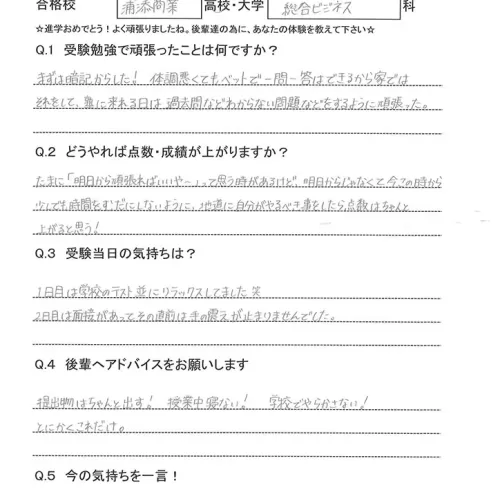 合格校 浦添商業 高校・大学 総合ビジネス 科
☆進学おめでとう！よく頑張りましたね。後輩達の為に、あなたの体験を教えて下さい☆
Q.1 受験勉強で頑張ったことは何ですか？
まずは暗記からした！ 体調悪くてもベットで一問一答はできるから家では
それをして、塾に来れる日は過去問などわからない問題などをするように頑張った。
Q.2 どうやれば点数・成績が上がりますか？
たまに「明日から頑張ればいいやー」って思う時があるけど、明日からじゃなくて今この時から
少しでも時間をむだにしないように、地道に自分がやるべき事をしたら点数はちゃんと
上がると思う！
Q.3 受験当日の気持ちは？
1日目は学校のテスト並にリラックスしてました 笑
2日目は面接があって、その直前は手の震えが止まりませんでした。
Q.4 後輩へアドバイスをお願いします
提出物はちゃんと出す！ 授業中寝ない！ 学校でやらかさない！
とにかくこれだけ。
Q.5 今の気持ちを一言！